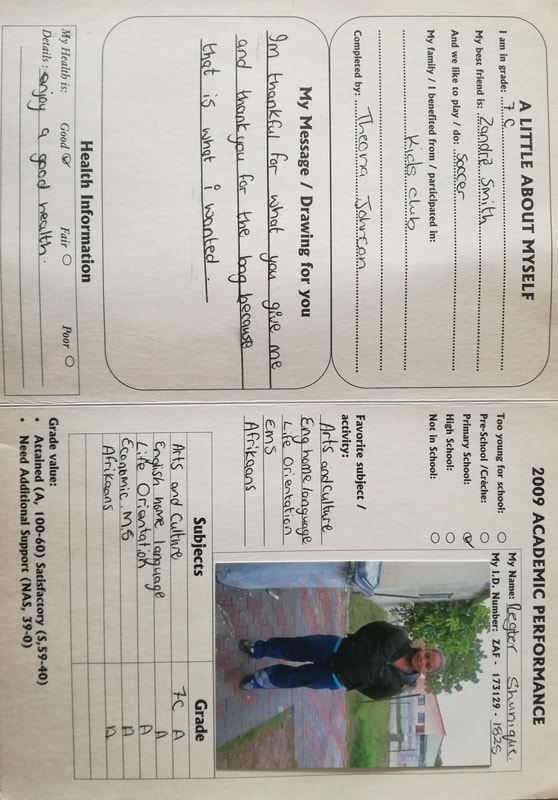 A LITTLE ABOUT MYSELF
I am in grade: 7C
My best friend is: Zandré Smith
And we like to play / do: soccer
My family / I benefited from / participated in:
Kids club
Completed by: Theona Johnson
My Message / Drawing for you
Im thankful for what you give me
and thankyou for the bag because
that is what i wanted.
Health Information
My Health is: Good Fair Poor
Details: enjoy a good health.
2009 ACADEMIC PERFORMANCE
Too young for school:
Pre-School / Crèche:
Primary School:
High School:
Not in School:
My Name: Regter Shunique.
My I.D. Number: ZAF - 173129 - 1525
Favorite subject /
activity:
Arts and Culture
Eng home language
Life Orientation
EMS
Afrikaans
Subjects Grade
Arts and Culture 7C A
English home language A
Life Orientation A
Economic. MS A
Afrikaans A
Grade value:
• Attained (A, 100-60) Satisfactory (S,59-40)
• Need Additional Support (NAS, 39-0)